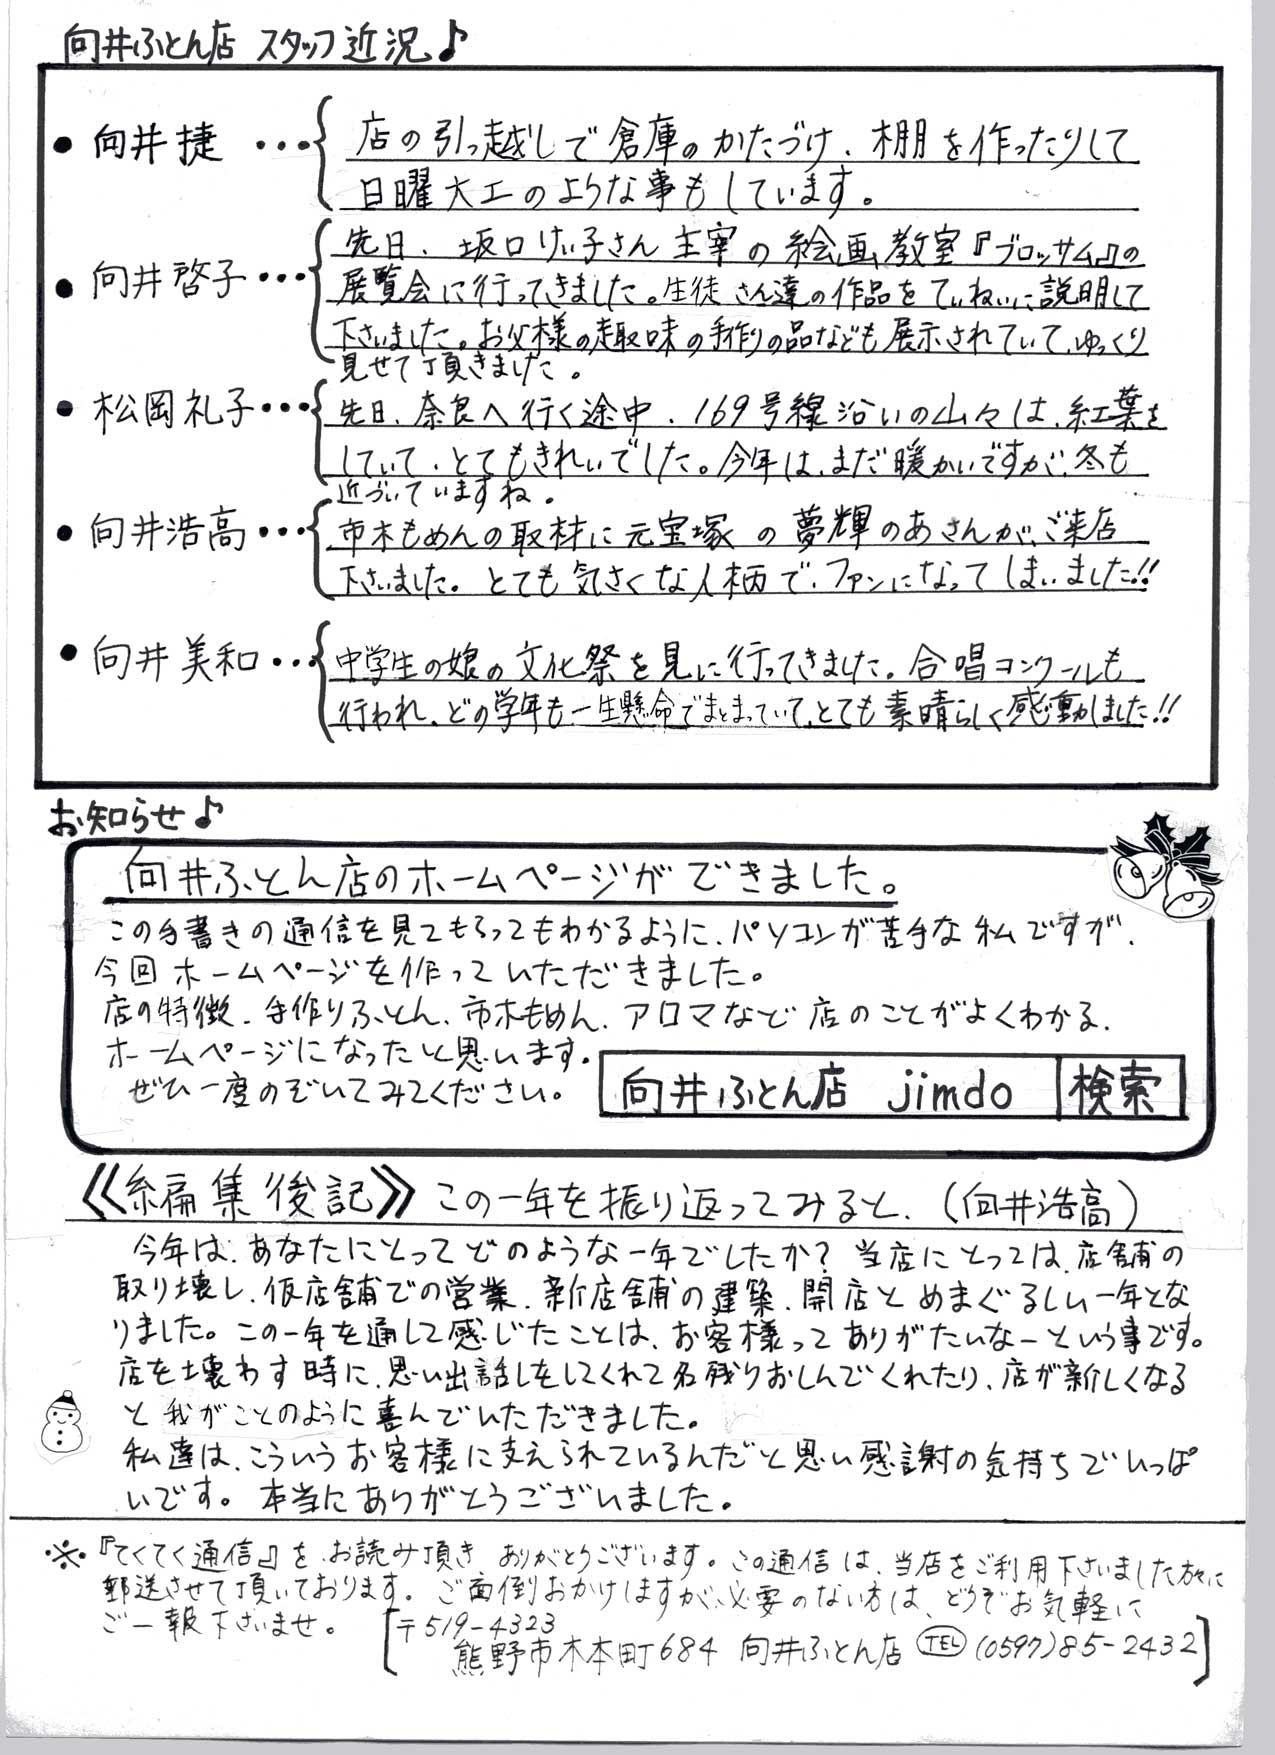 向井ふとん店 スタッフ近況♪
● 向井 捷 ・・・ 店の引っ越しで倉庫のかたづけ、棚を作ったりして
日曜大工のような事もしています。
● 向井啓子・・・ 先日、坂口けい子さん主宰の絵画教室『ブロッサム』の
展覧会に行ってきました。生徒さん達の作品をていねいに説明して
下さいました。お父様の趣味の手作りの品なども展示されていて、ゆっくり
見せて頂きました。
● 松岡礼子・・・ 先日、奈良へ行く途中、169号線沿いの山々は、紅葉を
していて、とてもきれいでした。今年は、まだ暖かいですが、冬も
近づいていますね。
● 向井浩高・・・ 市木もめんの取材に元宝塚の夢輝のあさんが、ご来店
下さいました。とても気さくな人柄で、ファンになってしまいました!!
● 向井美和・・・ 中学生の娘の文化祭を見に行ってきました。合唱コンクールも
行われ、どの学年も一生懸命でまとまっていて、とても素晴らしく感動しました!!
お知らせ♪
向井ふとん店のホームページができました。
この手書きの通信を見てもらってもわかるように、パソコンが苦手な私ですが、
今回ホームページを作っていただきました。
店の特徴、手作りふとん、市木もめん、アロマなど店のことがよくわかる、
ホームページになったいと思います。
ぜひ一度のぞいてみてください。
向井ふとん店 jimdo 検索
《編集後記》この一年を振り返ってみると、(向井浩高)
今年は、あなたにとってどのような一年でしたか? 当店にとっては、店舗の
取り壊し、仮店舗での営業、新店舗の建築、開店とめまぐるしい一年とな
りました。この一年を通して感じたことは、お客様ってありがたいなーという事です。
店を壊わす時に、思い出話しをしてくれて名残りおしんでくれたり、店が新しくなる
と我がことのように喜んでいただきました。
私達は、こういうお客様に支えられているんだと思い感謝の気持ちでいっぱ
いです。本当にありがとうございました。
※『てくてく通信』をお読み頂きありがとうございます。この通信は、当店をご利用下さいました方々に
郵送させて頂いております。ご面倒おかけしますが、必要のない方は、どうぞお気軽に
ご一報下さいませ。
〒519-4323
熊野市木本町684 向井ふとん店 TEL (0597)85-2432